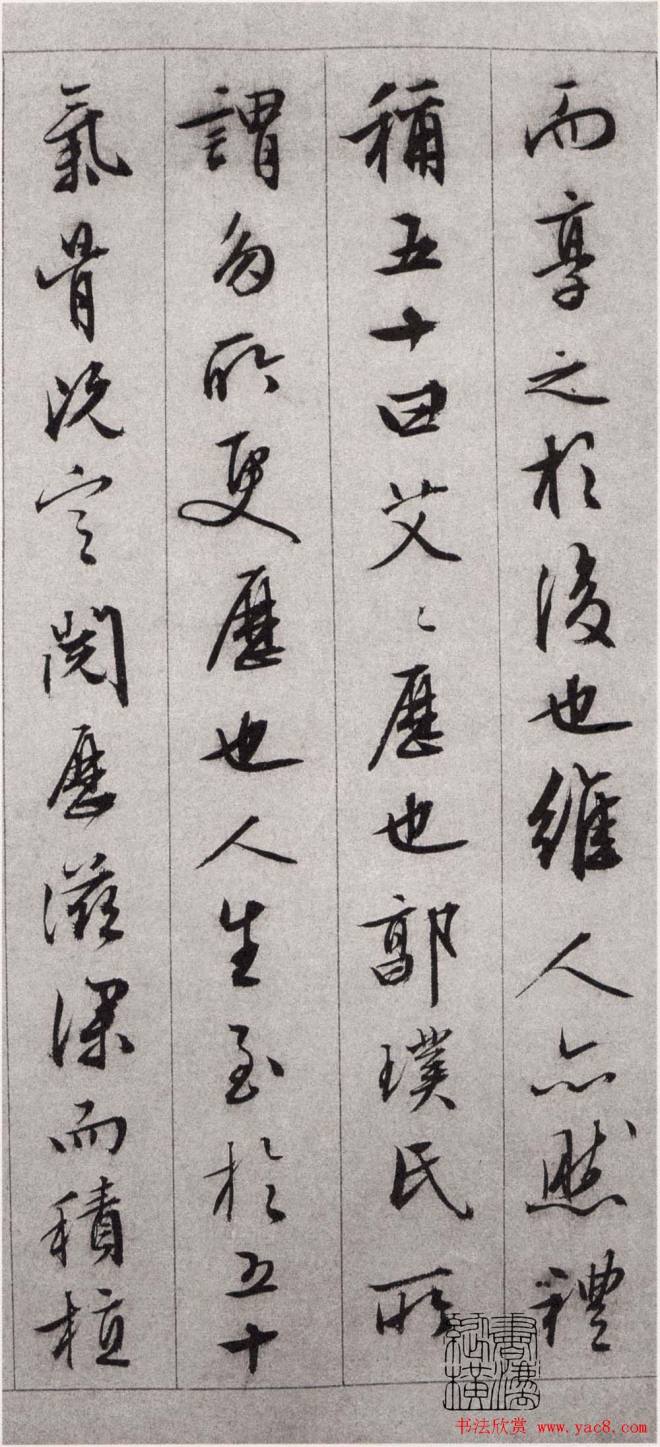 而享之於後也維人亦然禮
稱五十曰艾〻歷也郭璞氏所
謂多所更歷也人生至於五十
氣骨洗定閱歷滋深而積植
書法纵横
书法欣赏 www.yac8.com